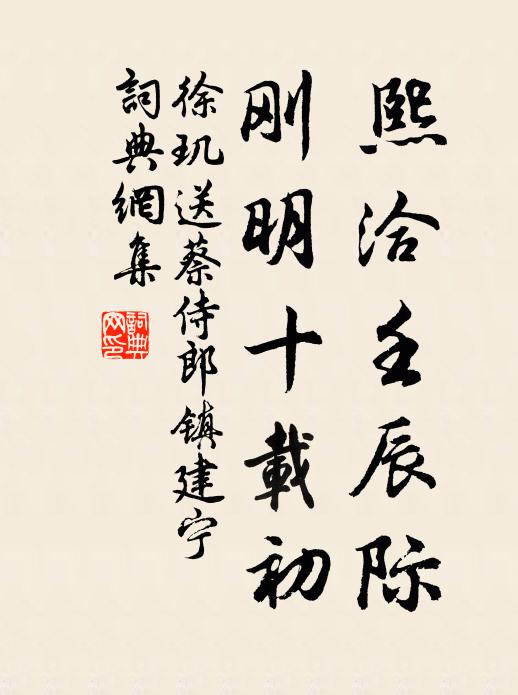 熙洽壬辰际
刚明十載初
徐玑送蔡侍郎镇建宁
詞典網集
詞典网印